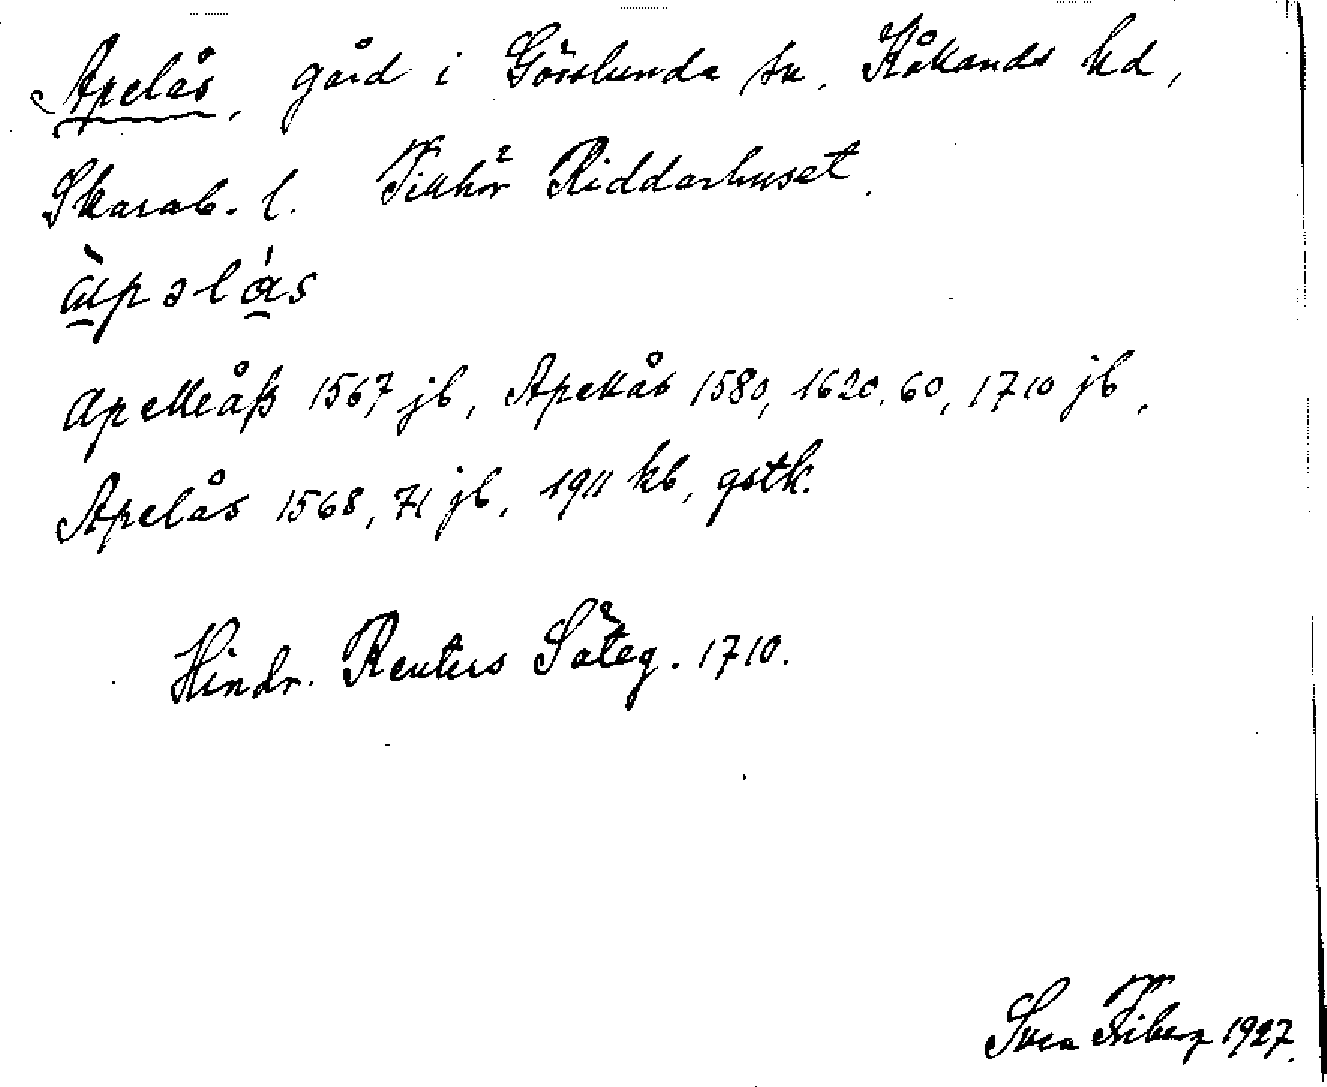 Apelås, gård i Görslunda sn, Kållands hd,
Skarab. l. Tillhör Riddarhuset.
àpəlás
Apelleåß 1567 jb, Apellås 1580, 1620, 60, 1710 jb,
Apelås 1568, 71 jb, 1911 kb, gstk.
Hindr. Reuters Säteg. 1710.
Svea Friberg 1927.